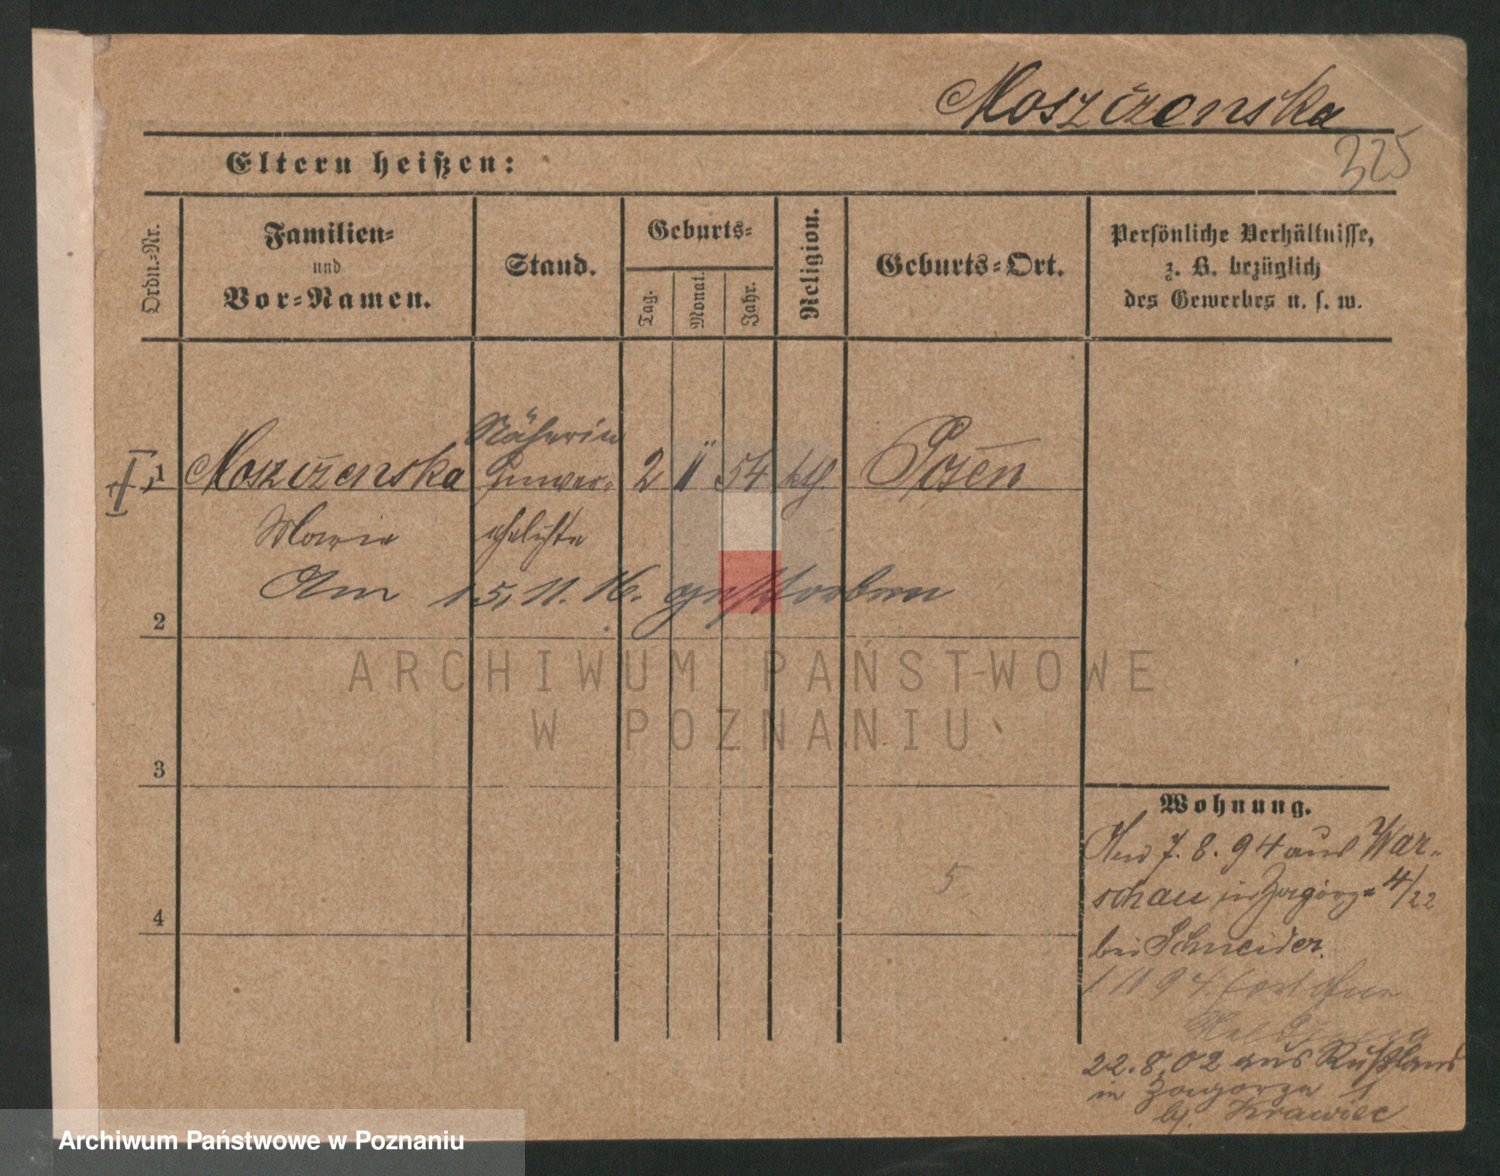 Moszczenska
325
Eltern heißen:
Ordn.-Nr.
Familien-
und
Vor-Namen.
Stand.
Geburts-
Tag.
Monat.
Jahr.
Religion.
Geburts-Ort.
Persönliche Verhältnisse,
z. B. bezüglich
des Gewerbes u. s. w.
I 1
Moszczenska
Näherin
2 11 54 kth Posen
Marie
ehelichte
Am 15. 11. 16. gestorben
2
ARCHIWUM PAŃSTWOWE
W POZNANIU
3
Wohnung.
7. 8. 94 aus War-
schau in Zagórze 4/22
bei Schneider.
5
4
1 11 94 fort ohne
22. 8. 02 aus Rußland
in Zagorze 1
bj. Krawiec
Archiwum Państwowe w Poznaniu